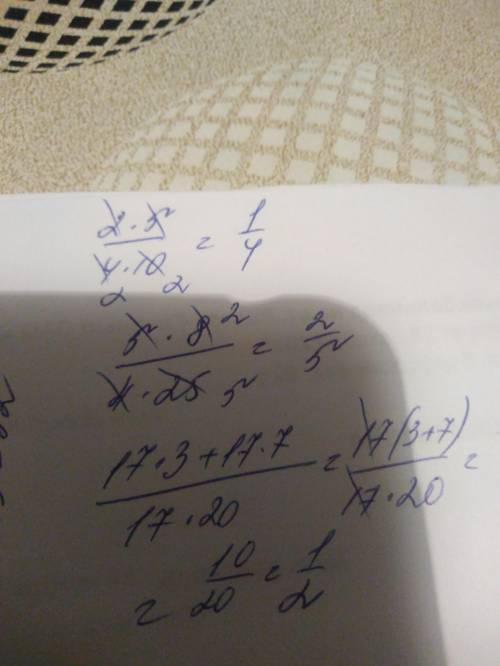 2·5 / 4·10 = 1/4
2 2
5·8 2 / 4·25 5 = 2/5
17·3+17·7 / 17·20 = 17(3+7) / 17·20 =
= 10/20 = 1/2